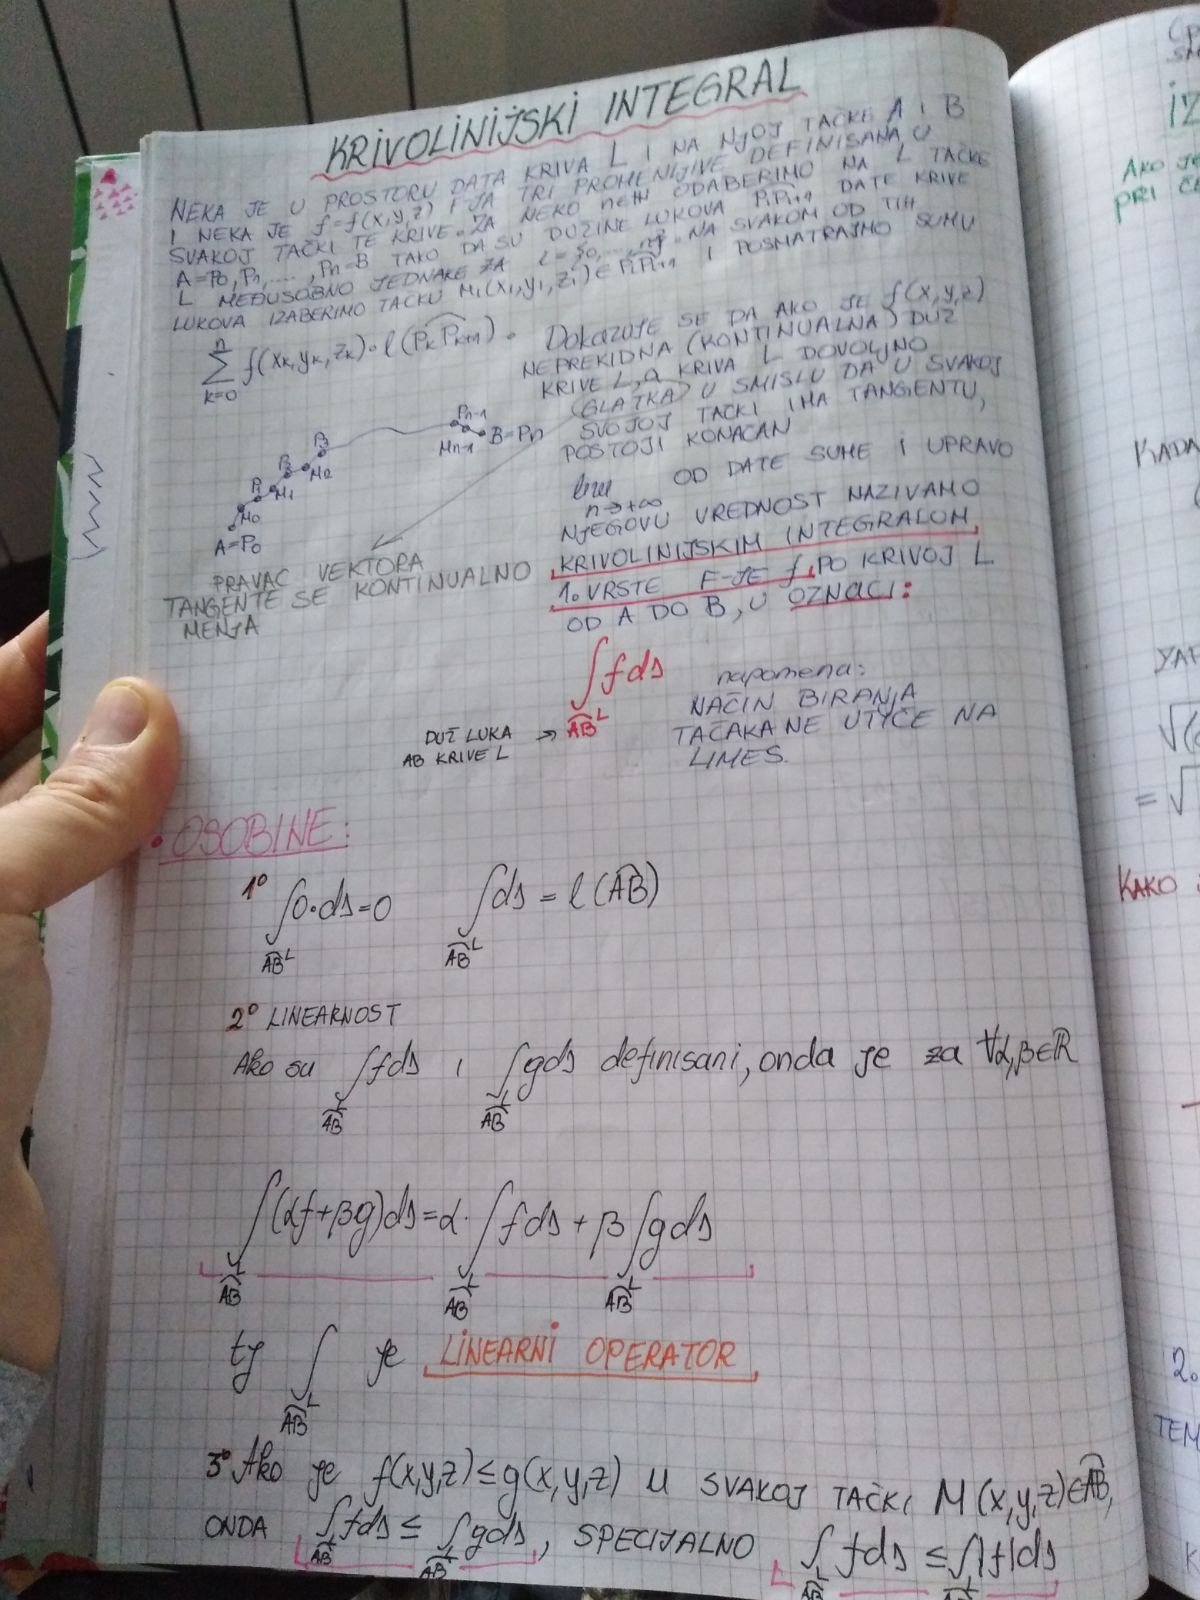 KRIVOLINIJSKI INTEGRAL
NEKA JE U PROSTORU DATA KRIVA L I NA NJOJ TAČKE A I B
I NEKA JE f=f(x,y,z) F-JA TRI PROMENLJIVE DEFINISANA U
SVAKOJ TAČKI TE KRIVE. ZA NEKO n∈N ODABERIMO NA L TAČKE
A=P0, ..., Pn=B TAKO DA SU DUŽINE LUKOVA PiPi+1 DATE KRIVE
L MEĐUSOBNO JEDNAKE ZA NA SVAKOM OD TIH
LUKOVA IZABERIMO TAČKU Mi(xi,yi,zi)∈PiPi+1 I POSMATRAJMO SUMU
n
∑ f(xk,yk,zk)·l(PkPk+1).
k=0
Dokazuje SE DA AKO JE f(x,y,z)
NEPREKIDNA (KONTINUALNA) DUŽ
KRIVE L, a KRIVA L DOVOLJNO
GLATKA U SMISLU DA U SVAKOJ
SVOJOJ TAČKI IMA TANGENTU,
POSTOJI KONAČAN
lim OD DATE SUME I UPRAVO
n→+∞
NJEGOVU VREDNOST NAZIVAMO
KRIVOLINIJSKIM INTEGRALOM
1. VRSTE F-JE f, PO KRIVOJ L
OD A DO B, U OZNACI:
Pn-1
B=Pn
Mn-1
P3
P2
M2
P1
M1
M0
A=P0
PRAVAC VEKTORA
TANGENTE SE KONTINUALNO
MENJA
∫fds
ABL
DUŽ LUKA →
AB KRIVE L
napomena:
NAČIN BIRANJA
TAČAKA NE UTIČE NA
LIMES.
• OSOBINE:
1° ∫0·ds=0 ∫ds = l(AB)
ABL ABL
2° LINEARNOST
Ako su ∫fds i ∫gds definisani, onda je za ∀α,β∈R
ABL ABL
∫(αf+βg)ds=α·∫fds+β∫gds
ABL ABL ABL
tj ∫ je LINEARNI OPERATOR
ABL
3° Ako je f(x,y,z)≤g(x,y,z) U SVAKOJ TAČKI M(x,y,z)∈AB,
ONDA ∫fds ≤ ∫gds, SPECIJALNO ∫fds ≤∫|f|ds
ABL ABL ABL ABL
IZ
AKO JE
PRI
KADA
= √
KAKO
2.
TEM
K